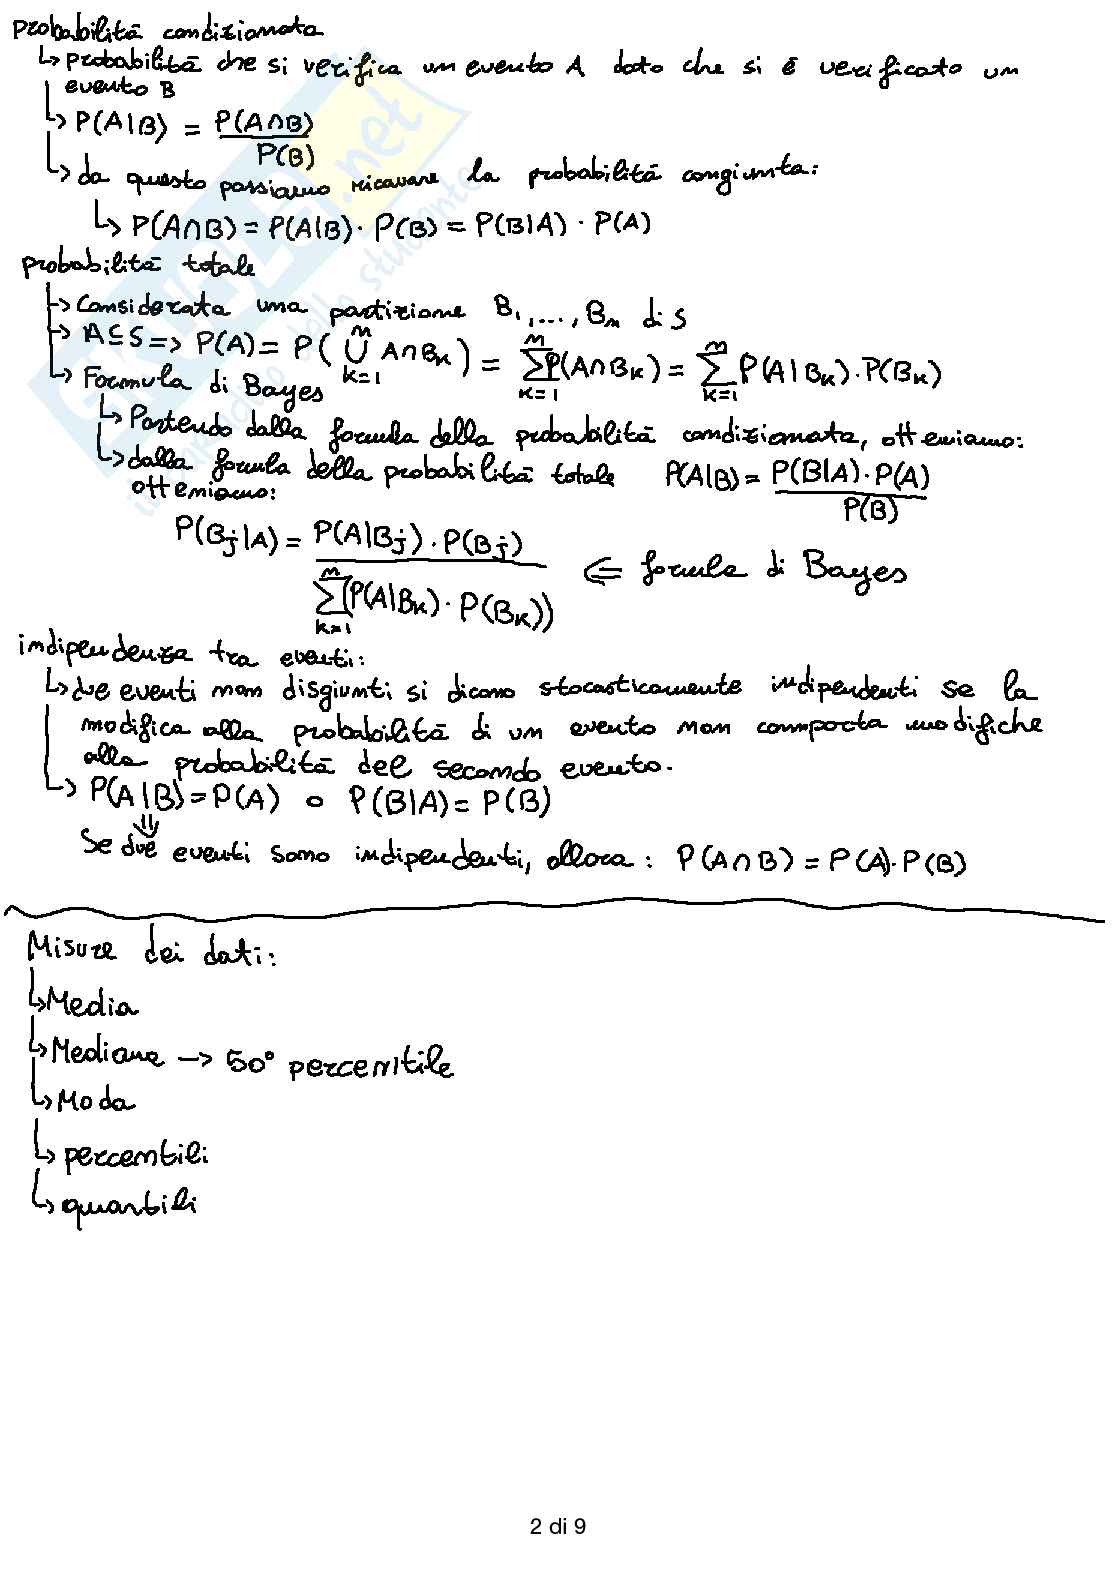 probabilità condizionata
↳ probabilità che si verifica un evento A dato che si è verificato un
evento B
↳ P(A|B) = P(A∩B) / P(B)
↳ da questo possiamo ricavare la probabilità congiunta:
↳ P(A∩B) = P(A|B) · P(B) = P(B|A) · P(A)
probabilità totale
↳ Considerata una partizione B₁,...,Bₙ di S
↳ A⊆S => P(A) = P(⋃_{k=1}^{n} A∩Bₖ) = ∑_{k=1}^{n} P(A∩Bₖ) = ∑_{k=1}^{n} P(A|Bₖ)·P(Bₖ)
↳ Formula di Bayes
↳ Partendo dalla formula della probabilità condizionata, otteniamo:
P(A|B) = P(B|A)·P(A) / P(B)
↳ dalla formula della probabilità totale
otteniamo:
P(Bⱼ|A) = P(A|Bⱼ)·P(Bⱼ) / ∑_{k=1}^{n}(P(A|Bₖ)·P(Bₖ)) ⇐ formula di Bayes
indipendenza tra eventi:
↳ due eventi non disgiunti si dicono stocasticamente indipendenti se la
modifica alla probabilità di un evento non comporta modifiche
alla probabilità del secondo evento.
↳ P(A|B) = P(A) o P(B|A) = P(B)
⇓
Se due eventi sono indipendenti, allora: P(A∩B) = P(A)·P(B)
Misure dei dati:
↳ Media
↳ Mediana -> 50° percentile
↳ Moda
↳ percentili
↳ quantili
2 di 9
SKUOLA.net